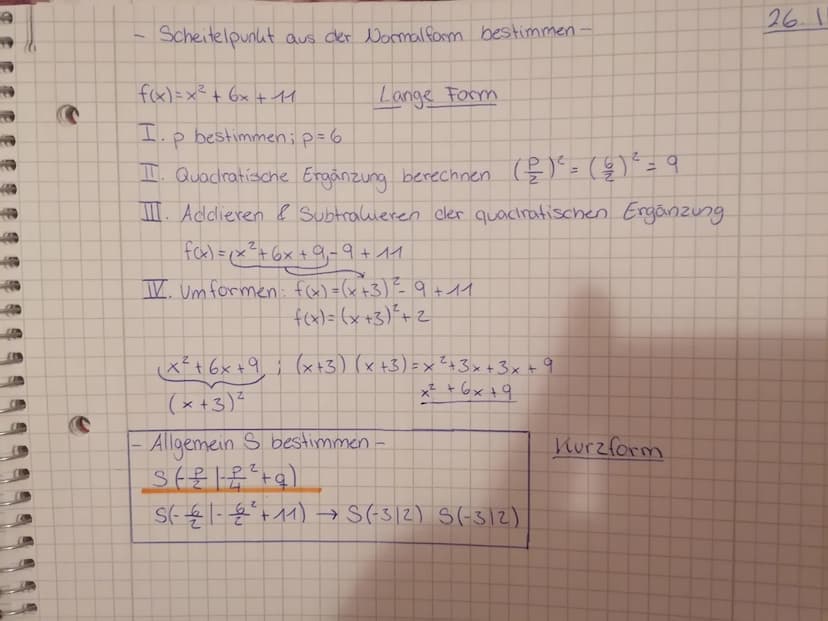 26.1
- Scheitelpunkt aus der Normalform bestimmen -
f(x)=x² + 6x + 11 Lange Form
I. p bestimmen; p=6
II. Quadratische Ergänzung berechnen (p/2)² = (6/2)² = 9
III. Addieren & Subtrahieren der quadratischen Ergänzung
f(x)=(x²+6x+9)-9+11
IV. Umformen: f(x)=(x+3)²-9+11
f(x)=(x+3)²+2
x²+6x+9 ; (x+3)(x+3)=x²+3x+3x+9
(x+3)² x² + 6x+9
- Allgemein S bestimmen - Kurzform
S(-p/2|-p/4²+q)
S(-6/2|-6/2²+11) → S(-3|2) S(-3|2)